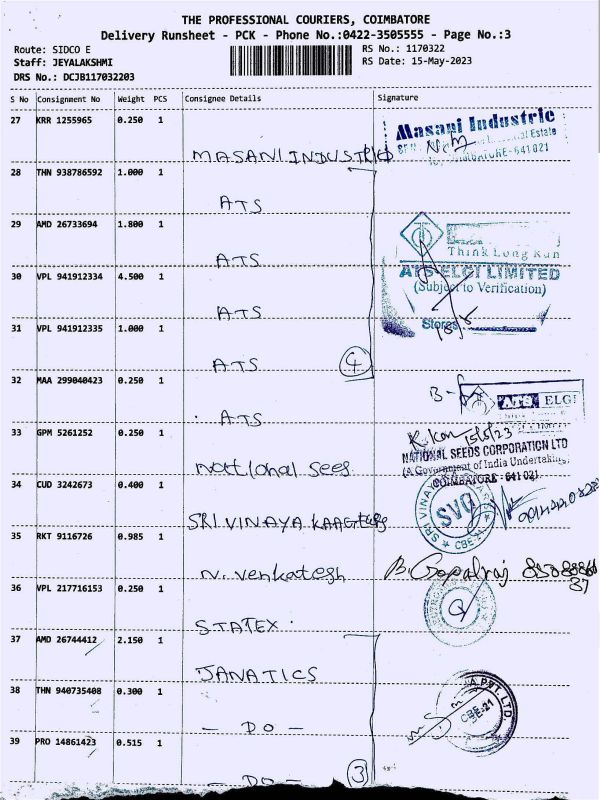 THE PROFESSIONAL COURIERS, COIMBATORE
Delivery Runsheet - PCK - Phone No.:0422-3505555 - Page No.:3
Route: SIDCO E RS No.: 1170322
Staff: JEYALAKSHMI RS Date: 15-May-2023
DRS No.: DCJB117032203
S No Consignment No Weight PCS Consignee Details Signature
27 KRR 1255965 0.250 1 Masani Industrie
Estate
COIMBATORE-641 021
MASANI INDUSTRIES
28 THN 938786592 1.000 1
ATS
29 AMD 26733694 1.800 1
Think Long Run
ATS
30 VPL 941912334 4.500 1 ATS ELGI LIMITED
(Subject to Verification)
ATS
31 VPL 941912335 1.000 1 Stores
15/5
ATS 4
32 MAA 299040423 0.250 1
ATS ELGI
ATS
33 GPM 5261252 0.250 1 15/5/23
NATIONAL SEEDS CORPORATION LTD
(A Government of India Undertaking)
National Sees
COIMBATORE - 641 021
34 CUD 3242673 0.400 1
SRI VINAYA
SVO
CBE
SRI VINAYA
35 RKT 9116726 0.985 1
N. Venkatesh B. Gopalraj
37
36 VPL 217716153 0.250 1
STATEX
37 AMD 26744412 2.150 1
JANATICS
38 THN 940735408 0.300 1
A PVT. LTD.
CBE-21
- DO -
39 PRO 14861423 0.515 1
- DO - 3